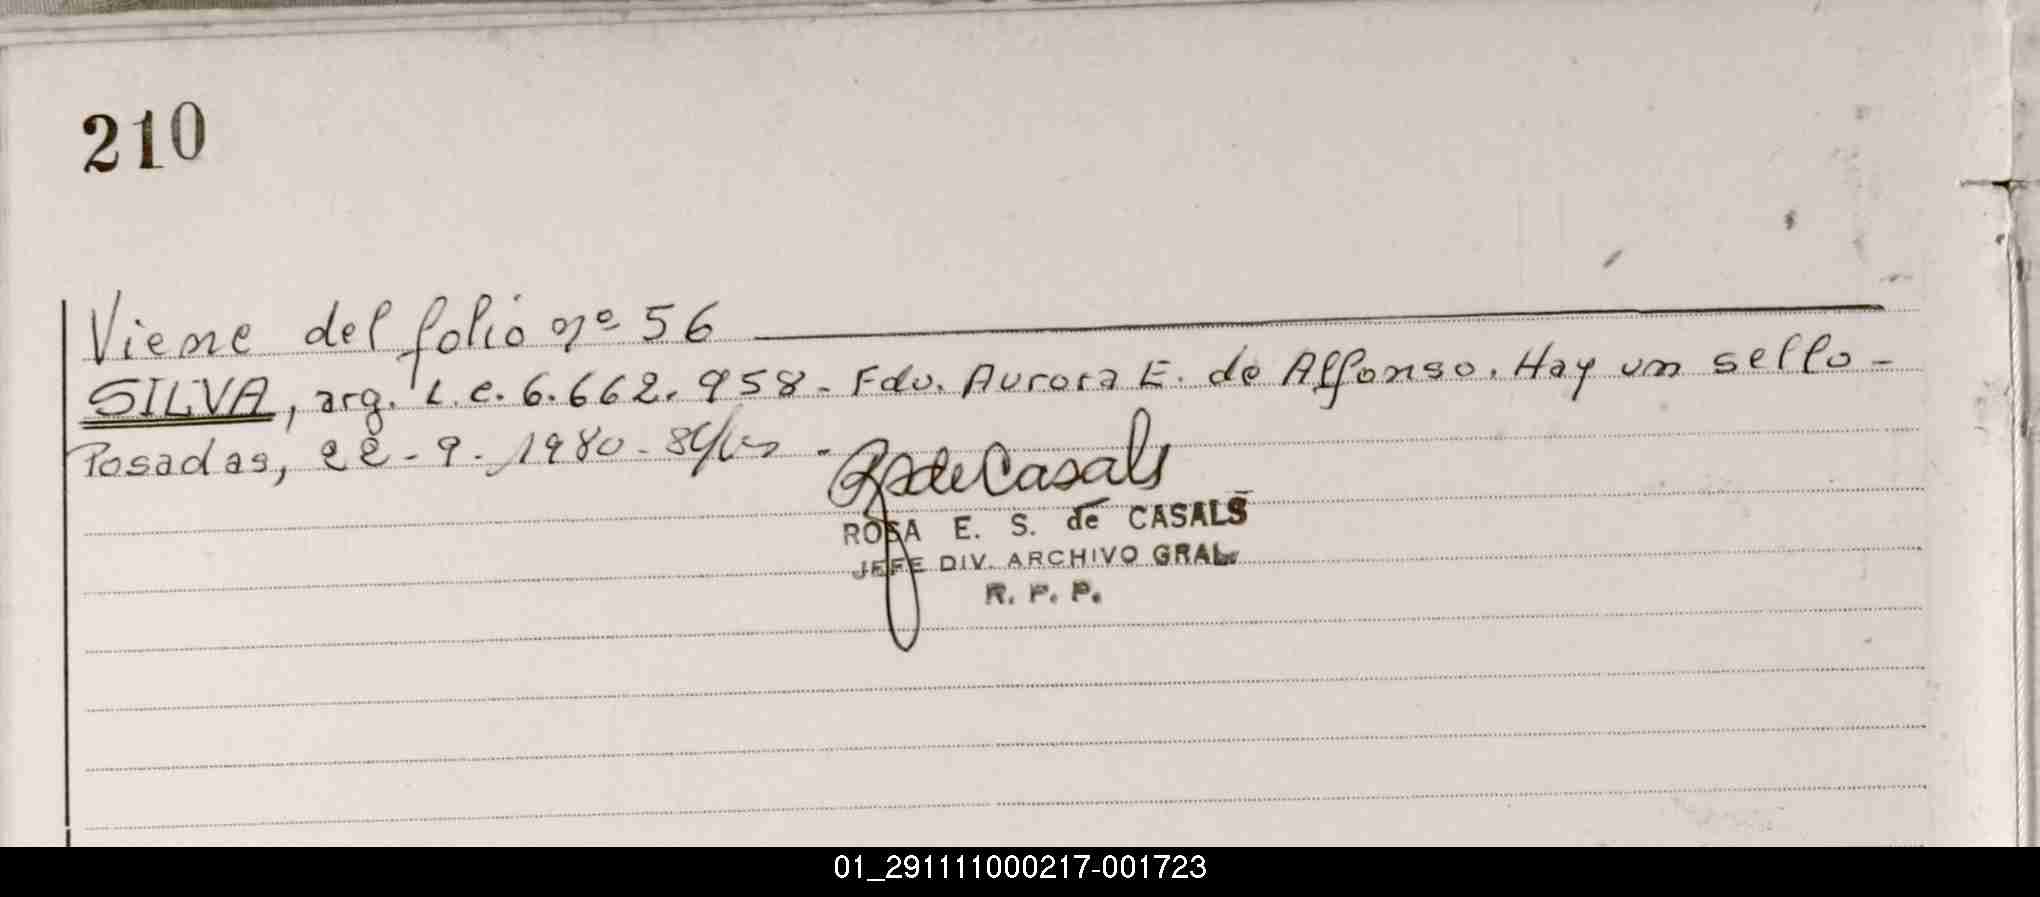 210
Viene del folio nº 56
SILVA, arg. L.e. 6.662.958 - Fdo. Aurora E. de Affonso. Hay un sello -
Posadas, 22 - 9 - 1980 -
RdeCasals
ROSA E. S. de CASALS
JEFE DIV. ARCHIVO GRAL.
R. P. P.
01_291111000217-001723